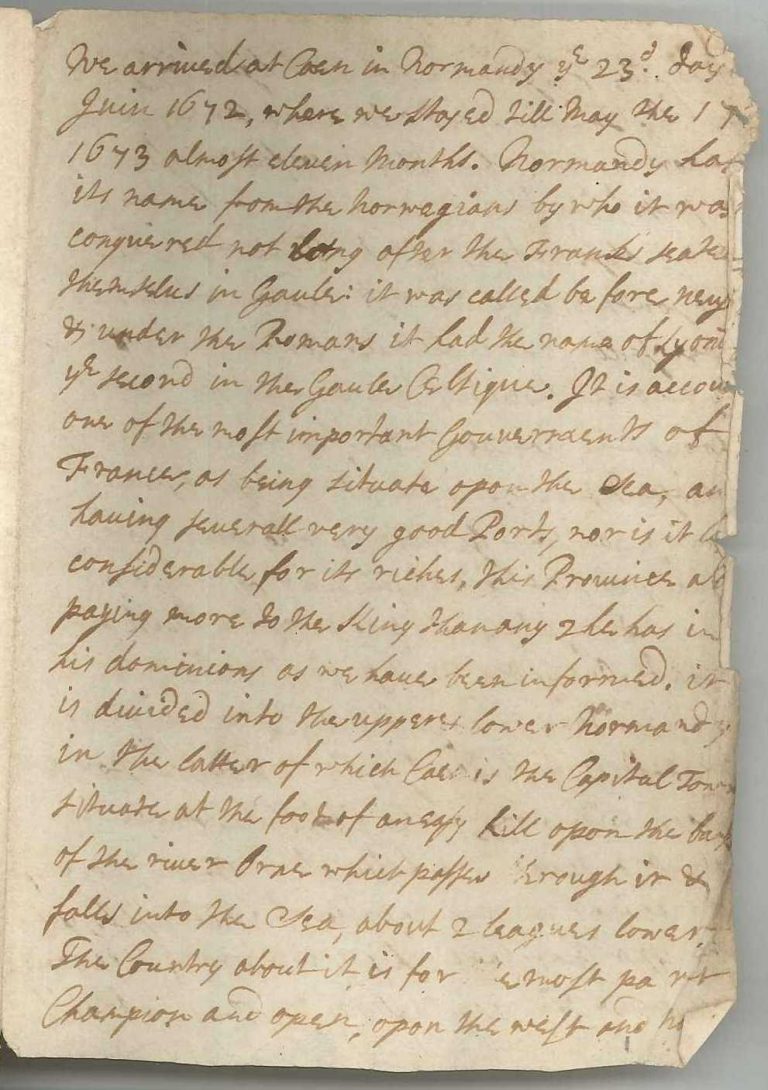 We arrived at Caen in Normandy yͤ 23ᵈ. day
Juin 1672, where we stayed till May the 17
1673 almost eleven Months. Normandy has
its name from the Norwegians by who it was
conquered not long after the Franks seated
themselves in Gaule: it was called before
& under the Romans it had the name of
yͤ second in the Gaule Celtique. It is
one of the most important Gouvernments of
France, as being situate opon the Sea, an
having severall very good Ports, nor is it
considerable for its riches, this Province
paying more to the King than any 2 he has in
his dominions as we have been informed. it
is divided into the upper & lower Normandy
in the latter of which Caen is the Capital Town
situate at the foot of an easy hill opon the bank
of the river Orne which passes through it &
falls into the Sea, about 2 leagues lower.
The Country about it is for the most part
Champion and open, opon the west and